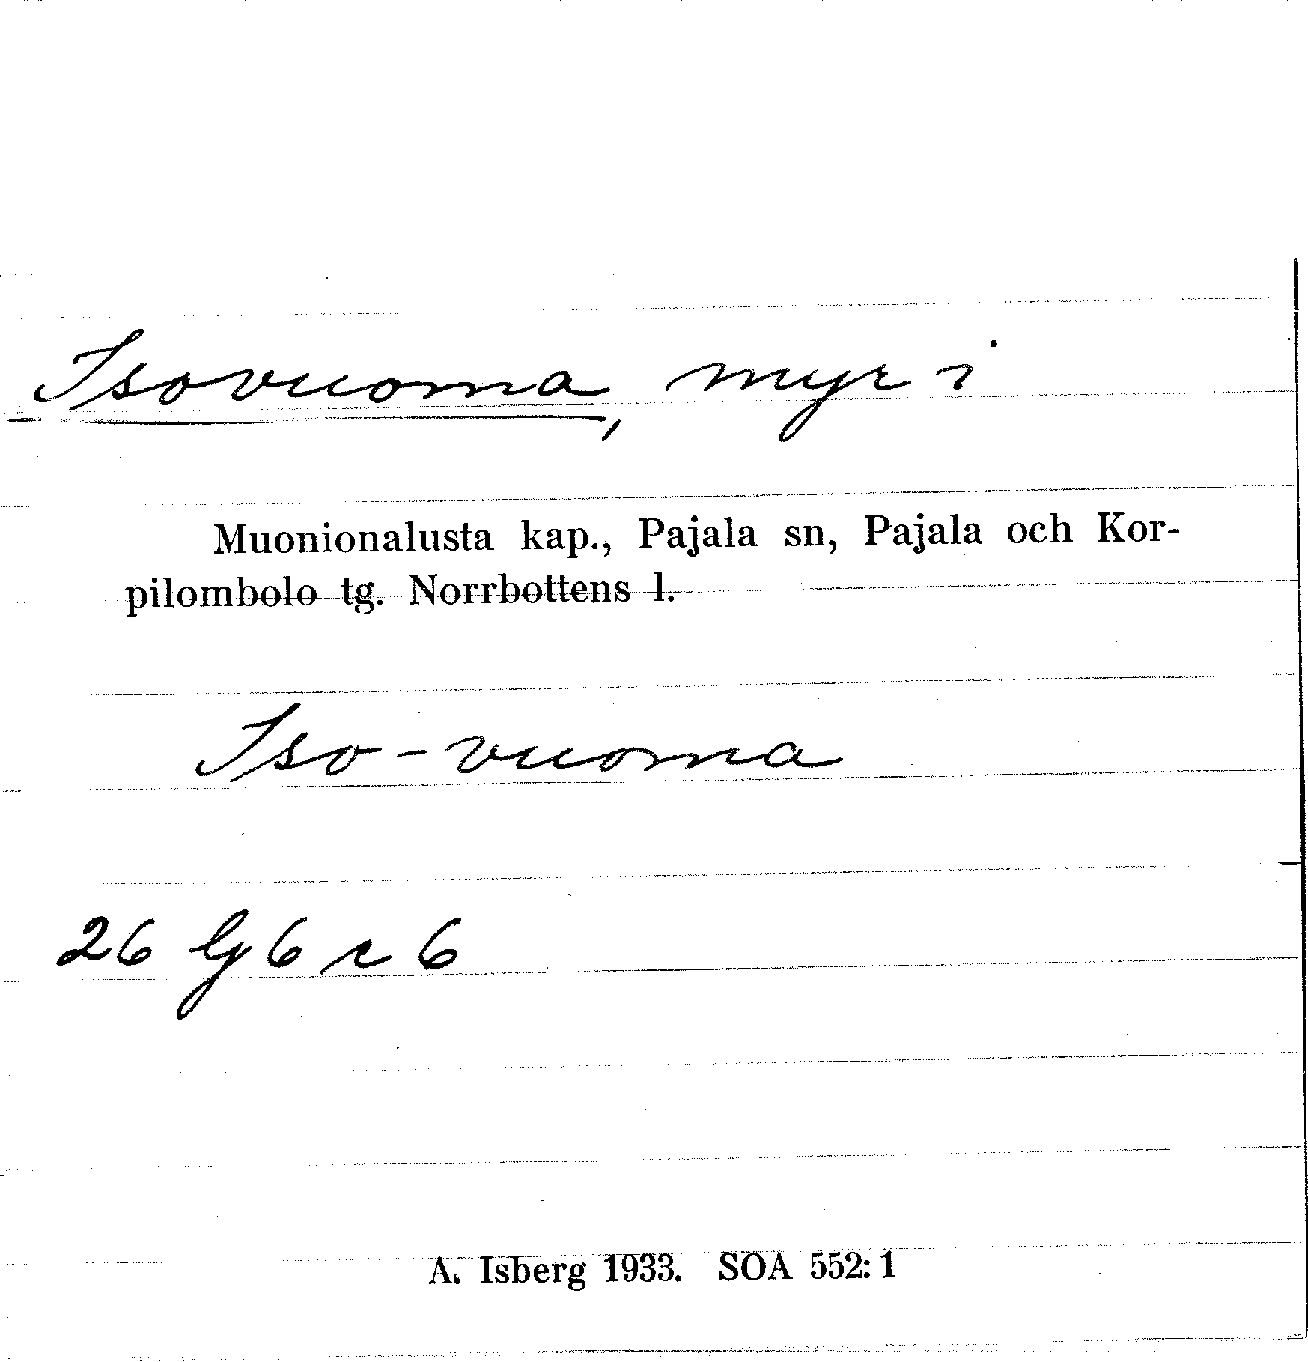 Isovuoma, myr i
Muonionalusta kap., Pajala sn, Pajala och Kor-
pilombolo tg. Norrbottens l.
Iso-vuoma
26 G 6 r 6
A. Isberg 1933. SOA 552: 1